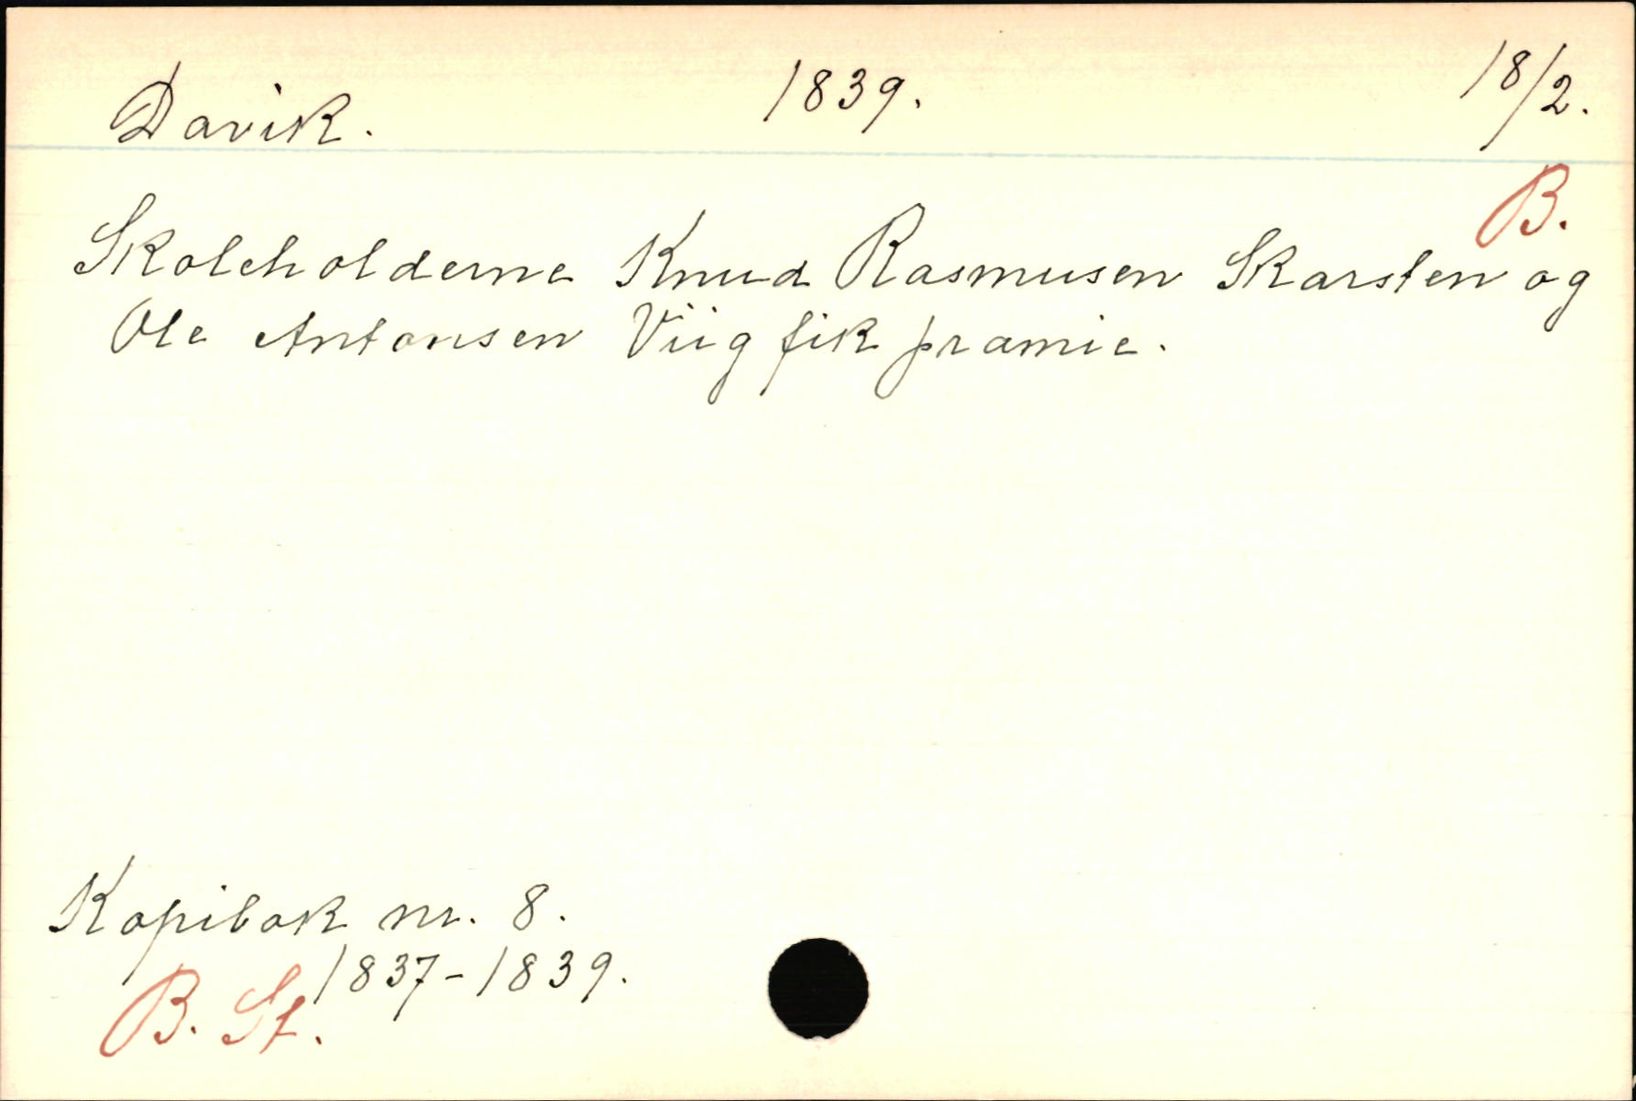 Davik. 1839. 18/2.
B.
Skoleholderne Knud Rasmusen Skarsten og
Ole Antonsen Viig fik præmie.
Kopibok nr. 8.
1837-1839.
B. St.